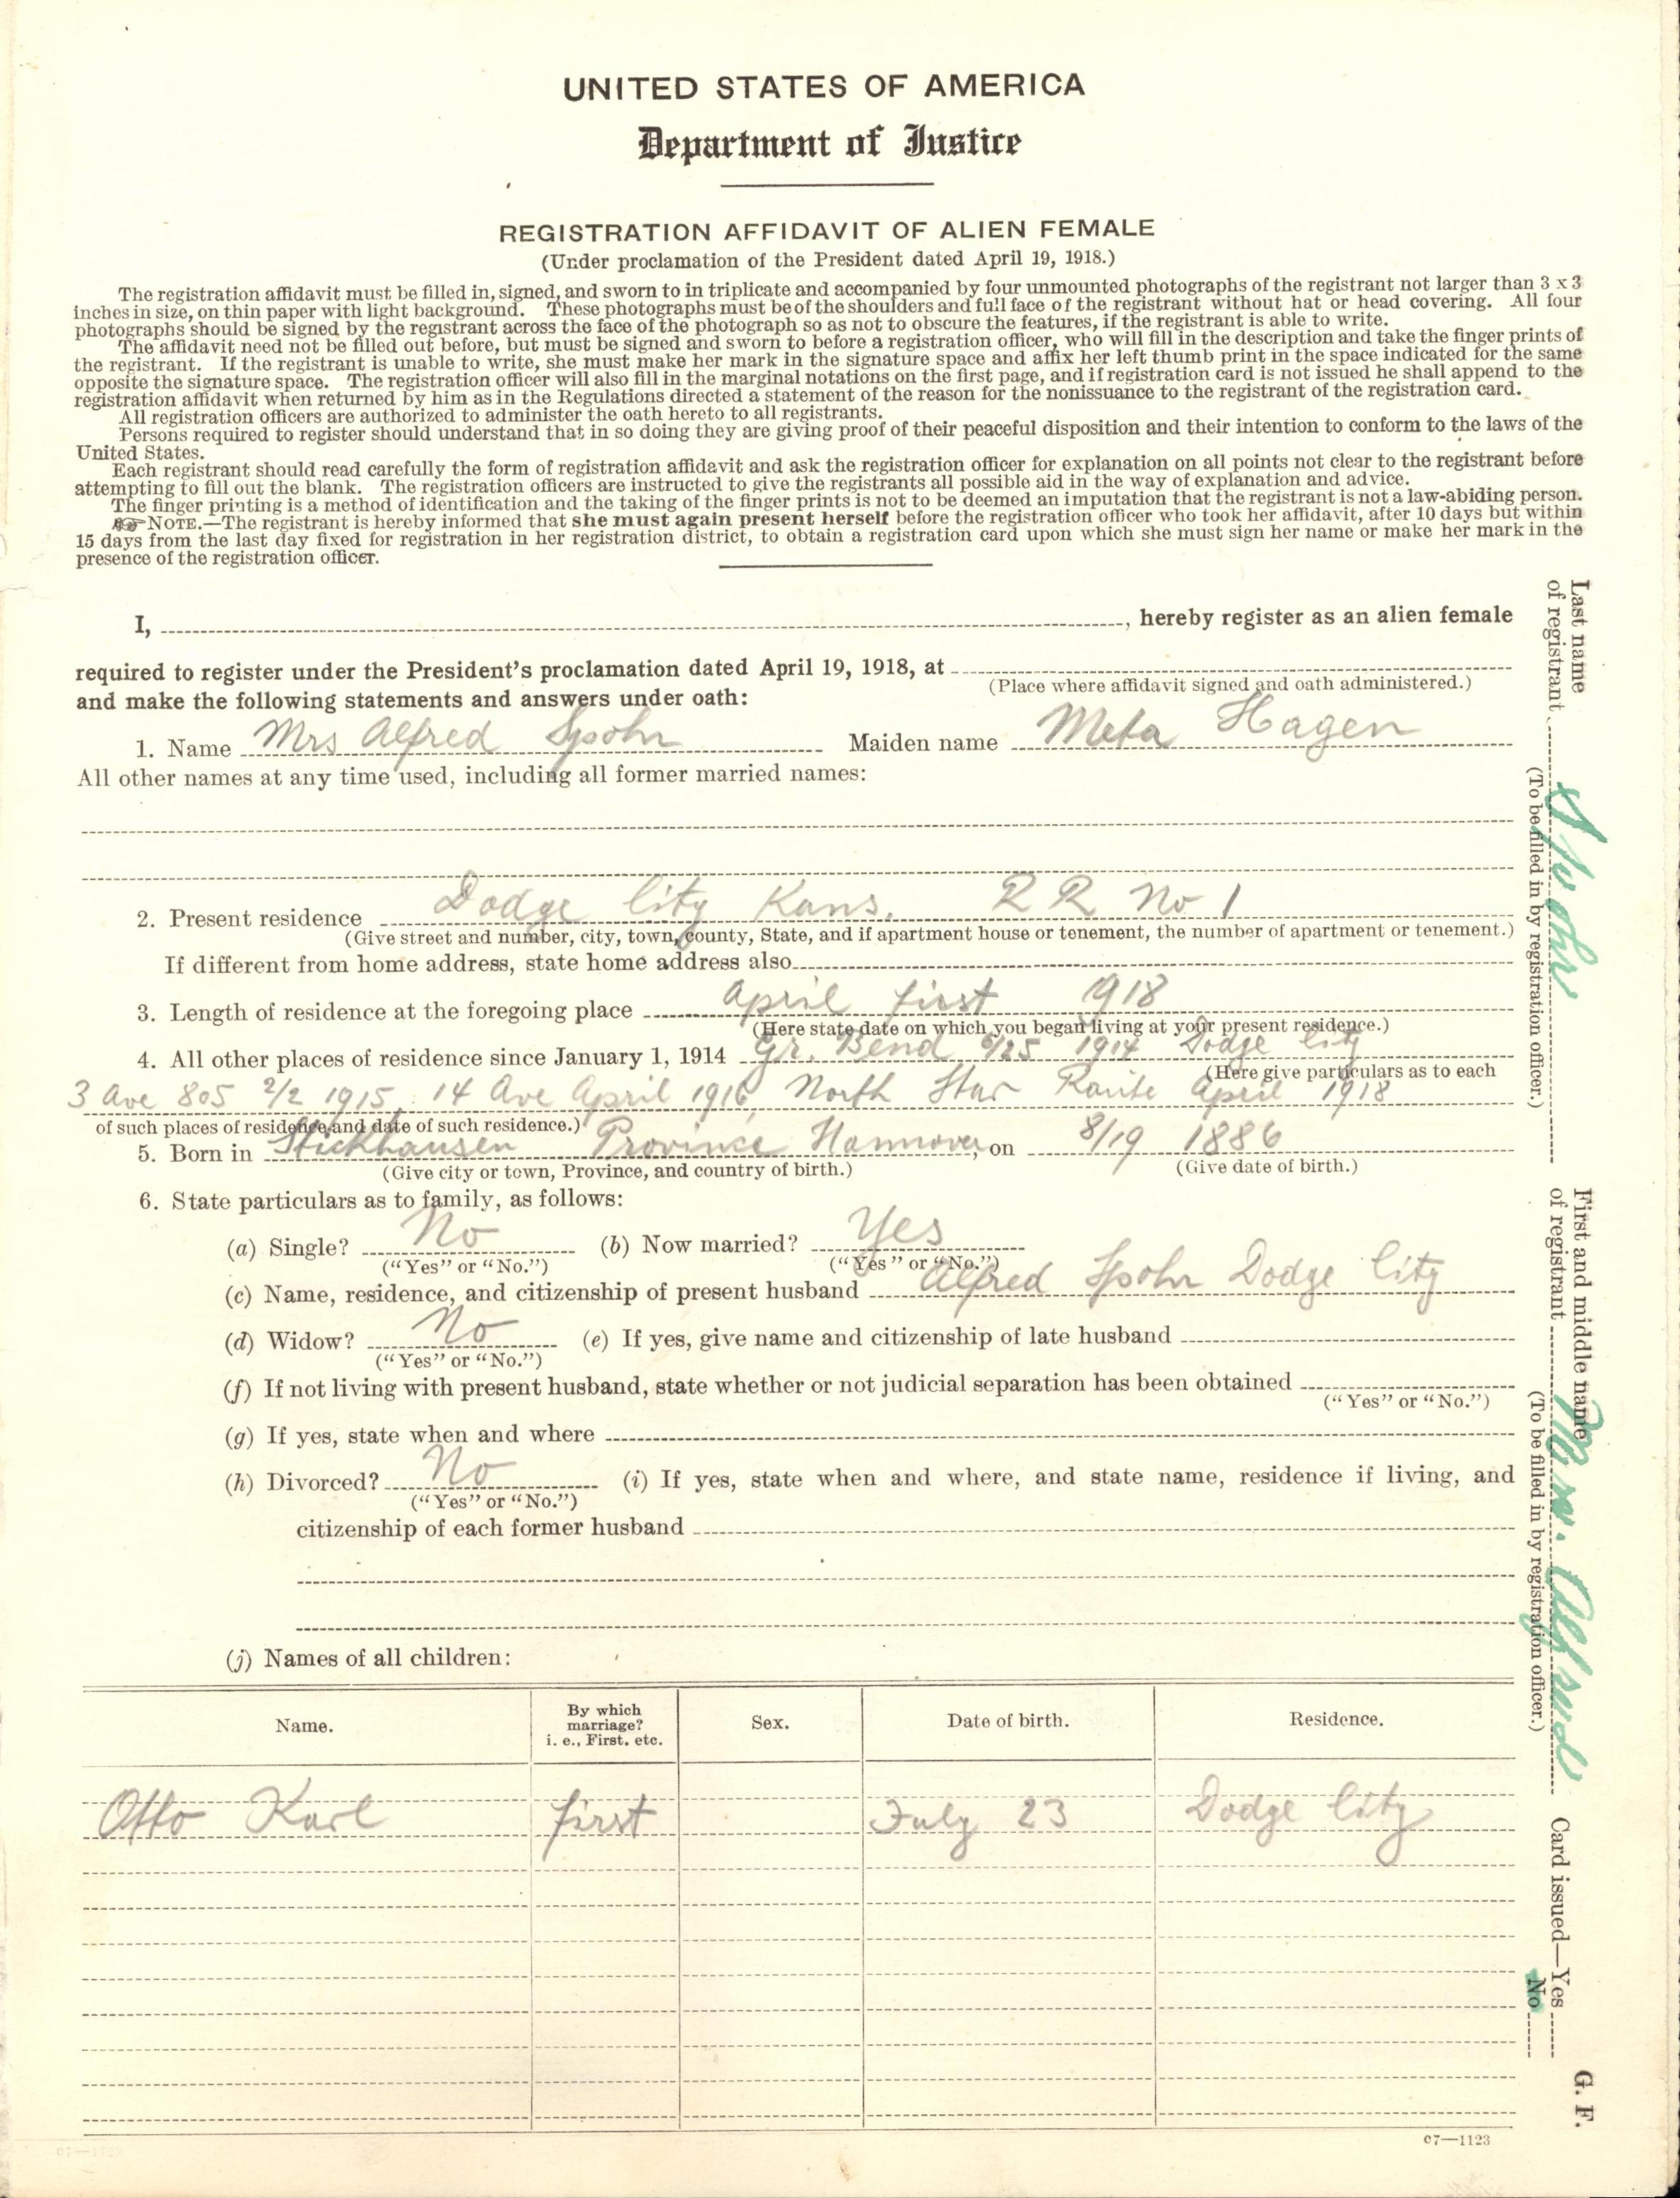 UNITED STATES OF AMERICA
Department of Justice
REGISTRATION AFFIDAVIT OF ALIEN FEMALE
(Under proclamation of the President dated April 19, 1918.)
The registration affidavit must be filled in, signed, and sworn to in triplicate and accompanied by four unmounted photographs of the registrant not larger than 3 x 3
inches in size, on thin paper with light background. These photographs must be of the shoulders and full face of the registrant without hat or head covering. All four
photographs should be signed by the registrant across the face of the photograph so as not to obscure the features, if the registrant is able to write.
The affidavit need not be filled out before, but must be signed and sworn to before a registration officer, who will fill in the description and take the finger prints of
the registrant. If the registrant is unable to write, she must make her mark in the signature space and affix her left thumb print in the space indicated for the same
opposite the signature space. The registration officer will also fill in the marginal notations on the first page, and if registration card is not issued he shall append to the
registration affidavit when returned by him as in the Regulations directed a statement of the reason for the nonissuance to the registrant of the registration card.
All registration officers are authorized to administer the oath hereto to all registrants.
Persons required to register should understand that in so doing they are giving proof of their peaceful disposition and their intention to conform to the laws of the
United States.
Each registrant should read carefully the form of registration affidavit and ask the registration officer for explanation on all points not clear to the registrant before
attempting to fill out the blank. The registration officers are instructed to give the registrants all possible aid in the way of explanation and advice.
The finger printing is a method of identification and the taking of the finger prints is not to be deemed an imputation that the registrant is not a law-abiding person.
☞NOTE.—The registrant is hereby informed that she must again present herself before the registration officer who took her affidavit, after 10 days but within
15 days from the last day fixed for registration in her registration district, to obtain a registration card upon which she must sign her name or make her mark in the
presence of the registration officer.
I, , hereby register as an alien female
required to register under the President's proclamation dated April 19, 1918, at
(Place where affidavit signed and oath administered.)
and make the following statements and answers under oath:
1. Name Mrs Alfred Spohr Maiden name Meta Hagen
All other names at any time used, including all former married names:
2. Present residence Dodge City Kans. R R No 1
(Give street and number, city, town, county, State, and if apartment house or tenement, the number of apartment or tenement.)
If different from home address, state home address also
3. Length of residence at the foregoing place April first 1918
(Here state date on which you began living at your present residence.)
4. All other places of residence since January 1, 1914 Gr. Bend 6/25 1914 Dodge City
(Here give particulars as to each
3 Ave 805 2/2 1915 14 Ave April 1916 North Star Route April 1918
of such places of residence and date of such residence.)
5. Born in Stickhausen Province Hannover, on 8/19 1886
(Give city or town, Province, and country of birth.) (Give date of birth.)
6. State particulars as to family, as follows:
(a) Single? No (b) Now married? Yes
("Yes" or "No.") ("Yes" or "No.")
(c) Name, residence, and citizenship of present husband Alfred Spohr Dodge City
(d) Widow? No (e) If yes, give name and citizenship of late husband
("Yes" or "No.")
(f) If not living with present husband, state whether or not judicial separation has been obtained
("Yes" or "No.")
(g) If yes, state when and where
(h) Divorced? No (i) If yes, state when and where, and state name, residence if living, and
("Yes" or "No.")
citizenship of each former husband
(j) Names of all children:
Name. By which marriage? i. e., First, etc. Sex. Date of birth. Residence.
Otto Karl first July 23 Dodge City
c7—1123
Last name
of registrant Spohr
(To be filled in by registration officer.)
First and middle name
of registrant Mrs. Alfred
(To be filled in by registration officer.)
Card issued—Yes
No
G. F.